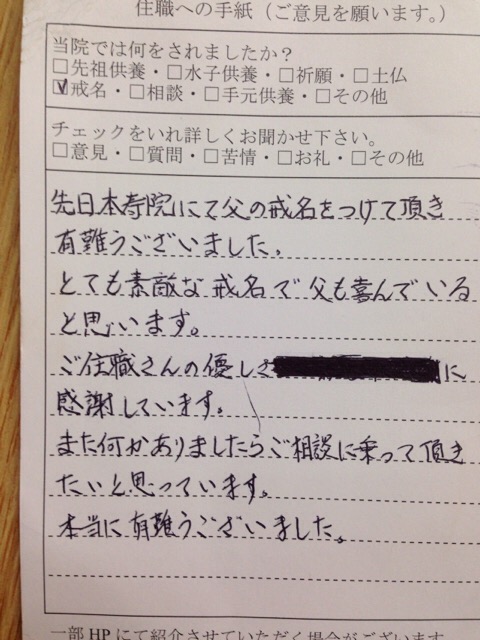 住職への手紙（ご意見を願います。）
当院では何をされましたか？
□先祖供養・□水子供養・□祈願・□土仏
☑戒名・□相談・□手元供養・□その他
チェックをいれ詳しくお聞かせ下さい。
□意見・□質問・□苦情・□お礼・□その他
先日本寿院にて父の戒名をつけて頂き
有難うございました。
とても素敵な戒名で父も喜んでいる
と思います。
ご住職さんの優しさ に
感謝しています。
また何かありましたらご相談に乗って頂き
たいと思っています。
本当に有難うございました。
一部HPにて紹介させていただく場合がございます。